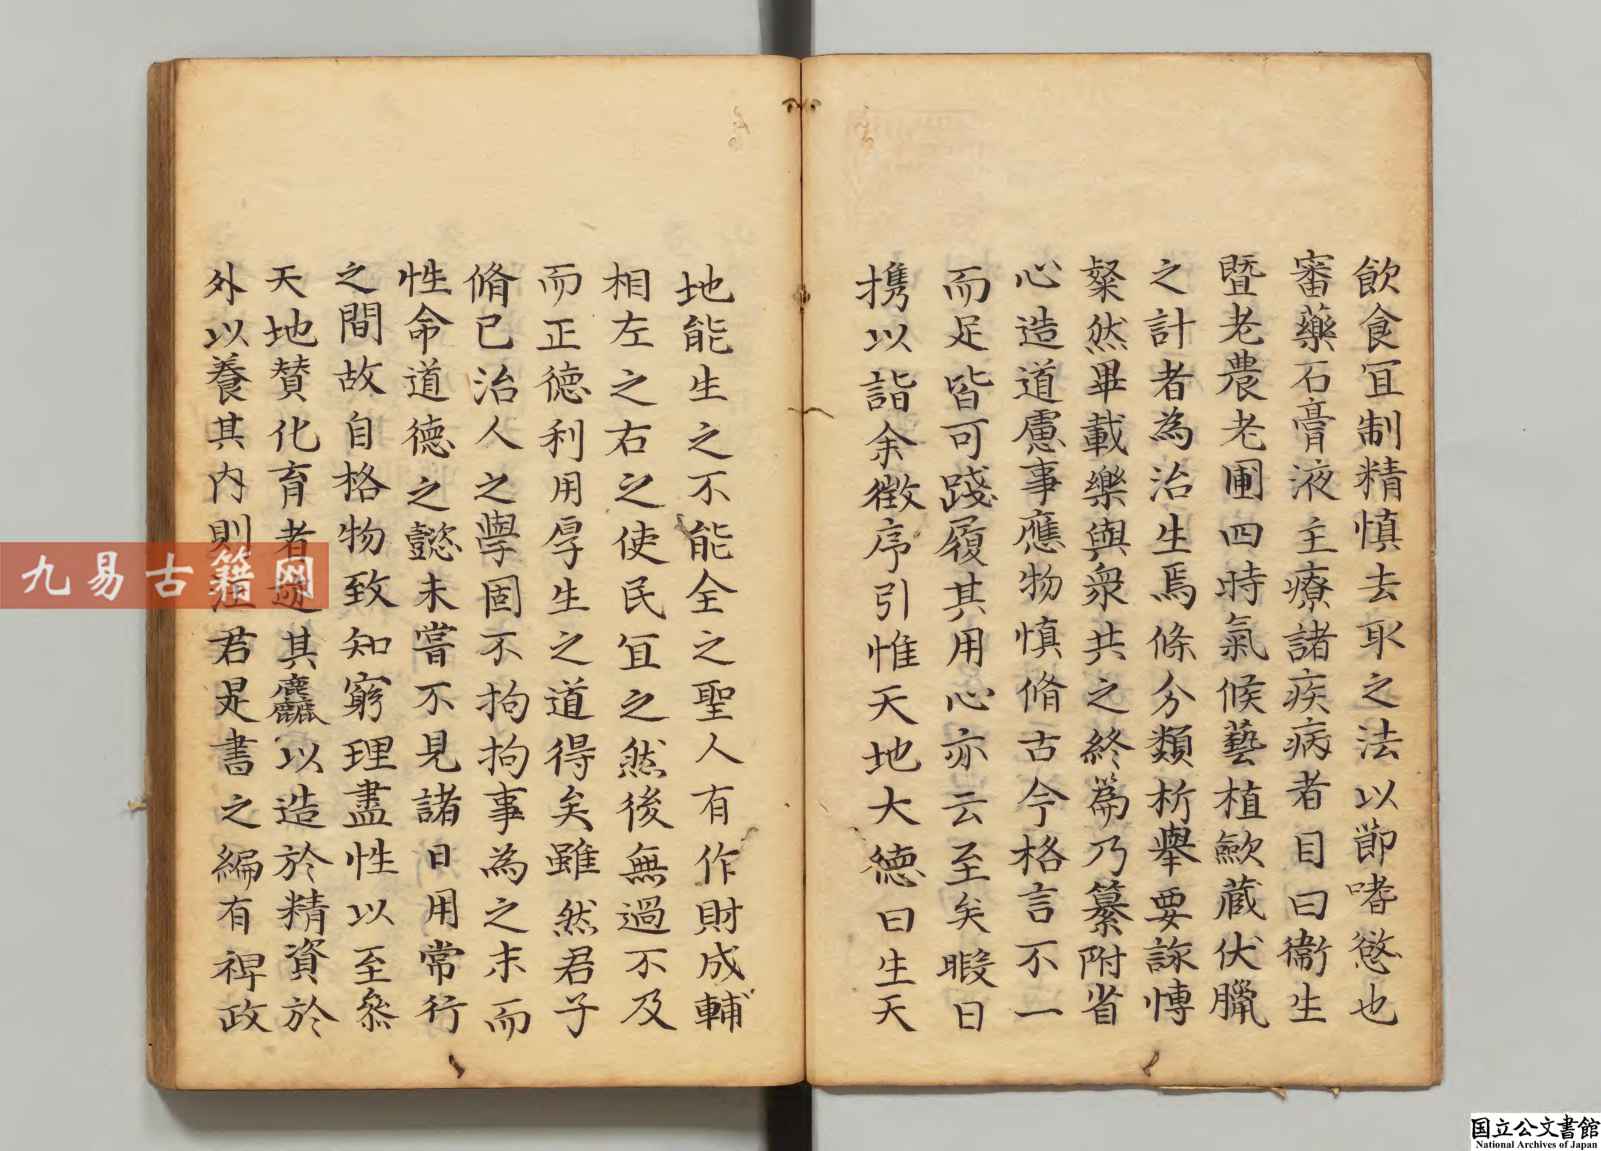 飲食宜制精慎去取之法以節嗜慾也
審藥石膏液主療諸疾病者目曰衞生
暨老農老圃四時氣候藝植歛藏伏臘
之計者為治生焉條分類析舉要詠慱
粲然畢載樂與衆共之終篇乃纂附省
心造道慮事應物慎脩古今格言不一
而足皆可踐履其用心亦云至矣暇日
携以詣余徵序引惟天地大德曰生天
地能生之不能全之聖人有作財成輔
相左之右之使民宜之然後無過不及
而正德利用厚生之道得矣雖然君子
脩已治人之學固不拘拘事為之末而
性命道德之懿未嘗不見諸日用常行
之間故自格物致知窮理盡性以至叅
天地賛化育者其麤以造於精資於
外以養其内則君是書之編有裨政
九易古籍网
国立公文書館
National Archives of Japan